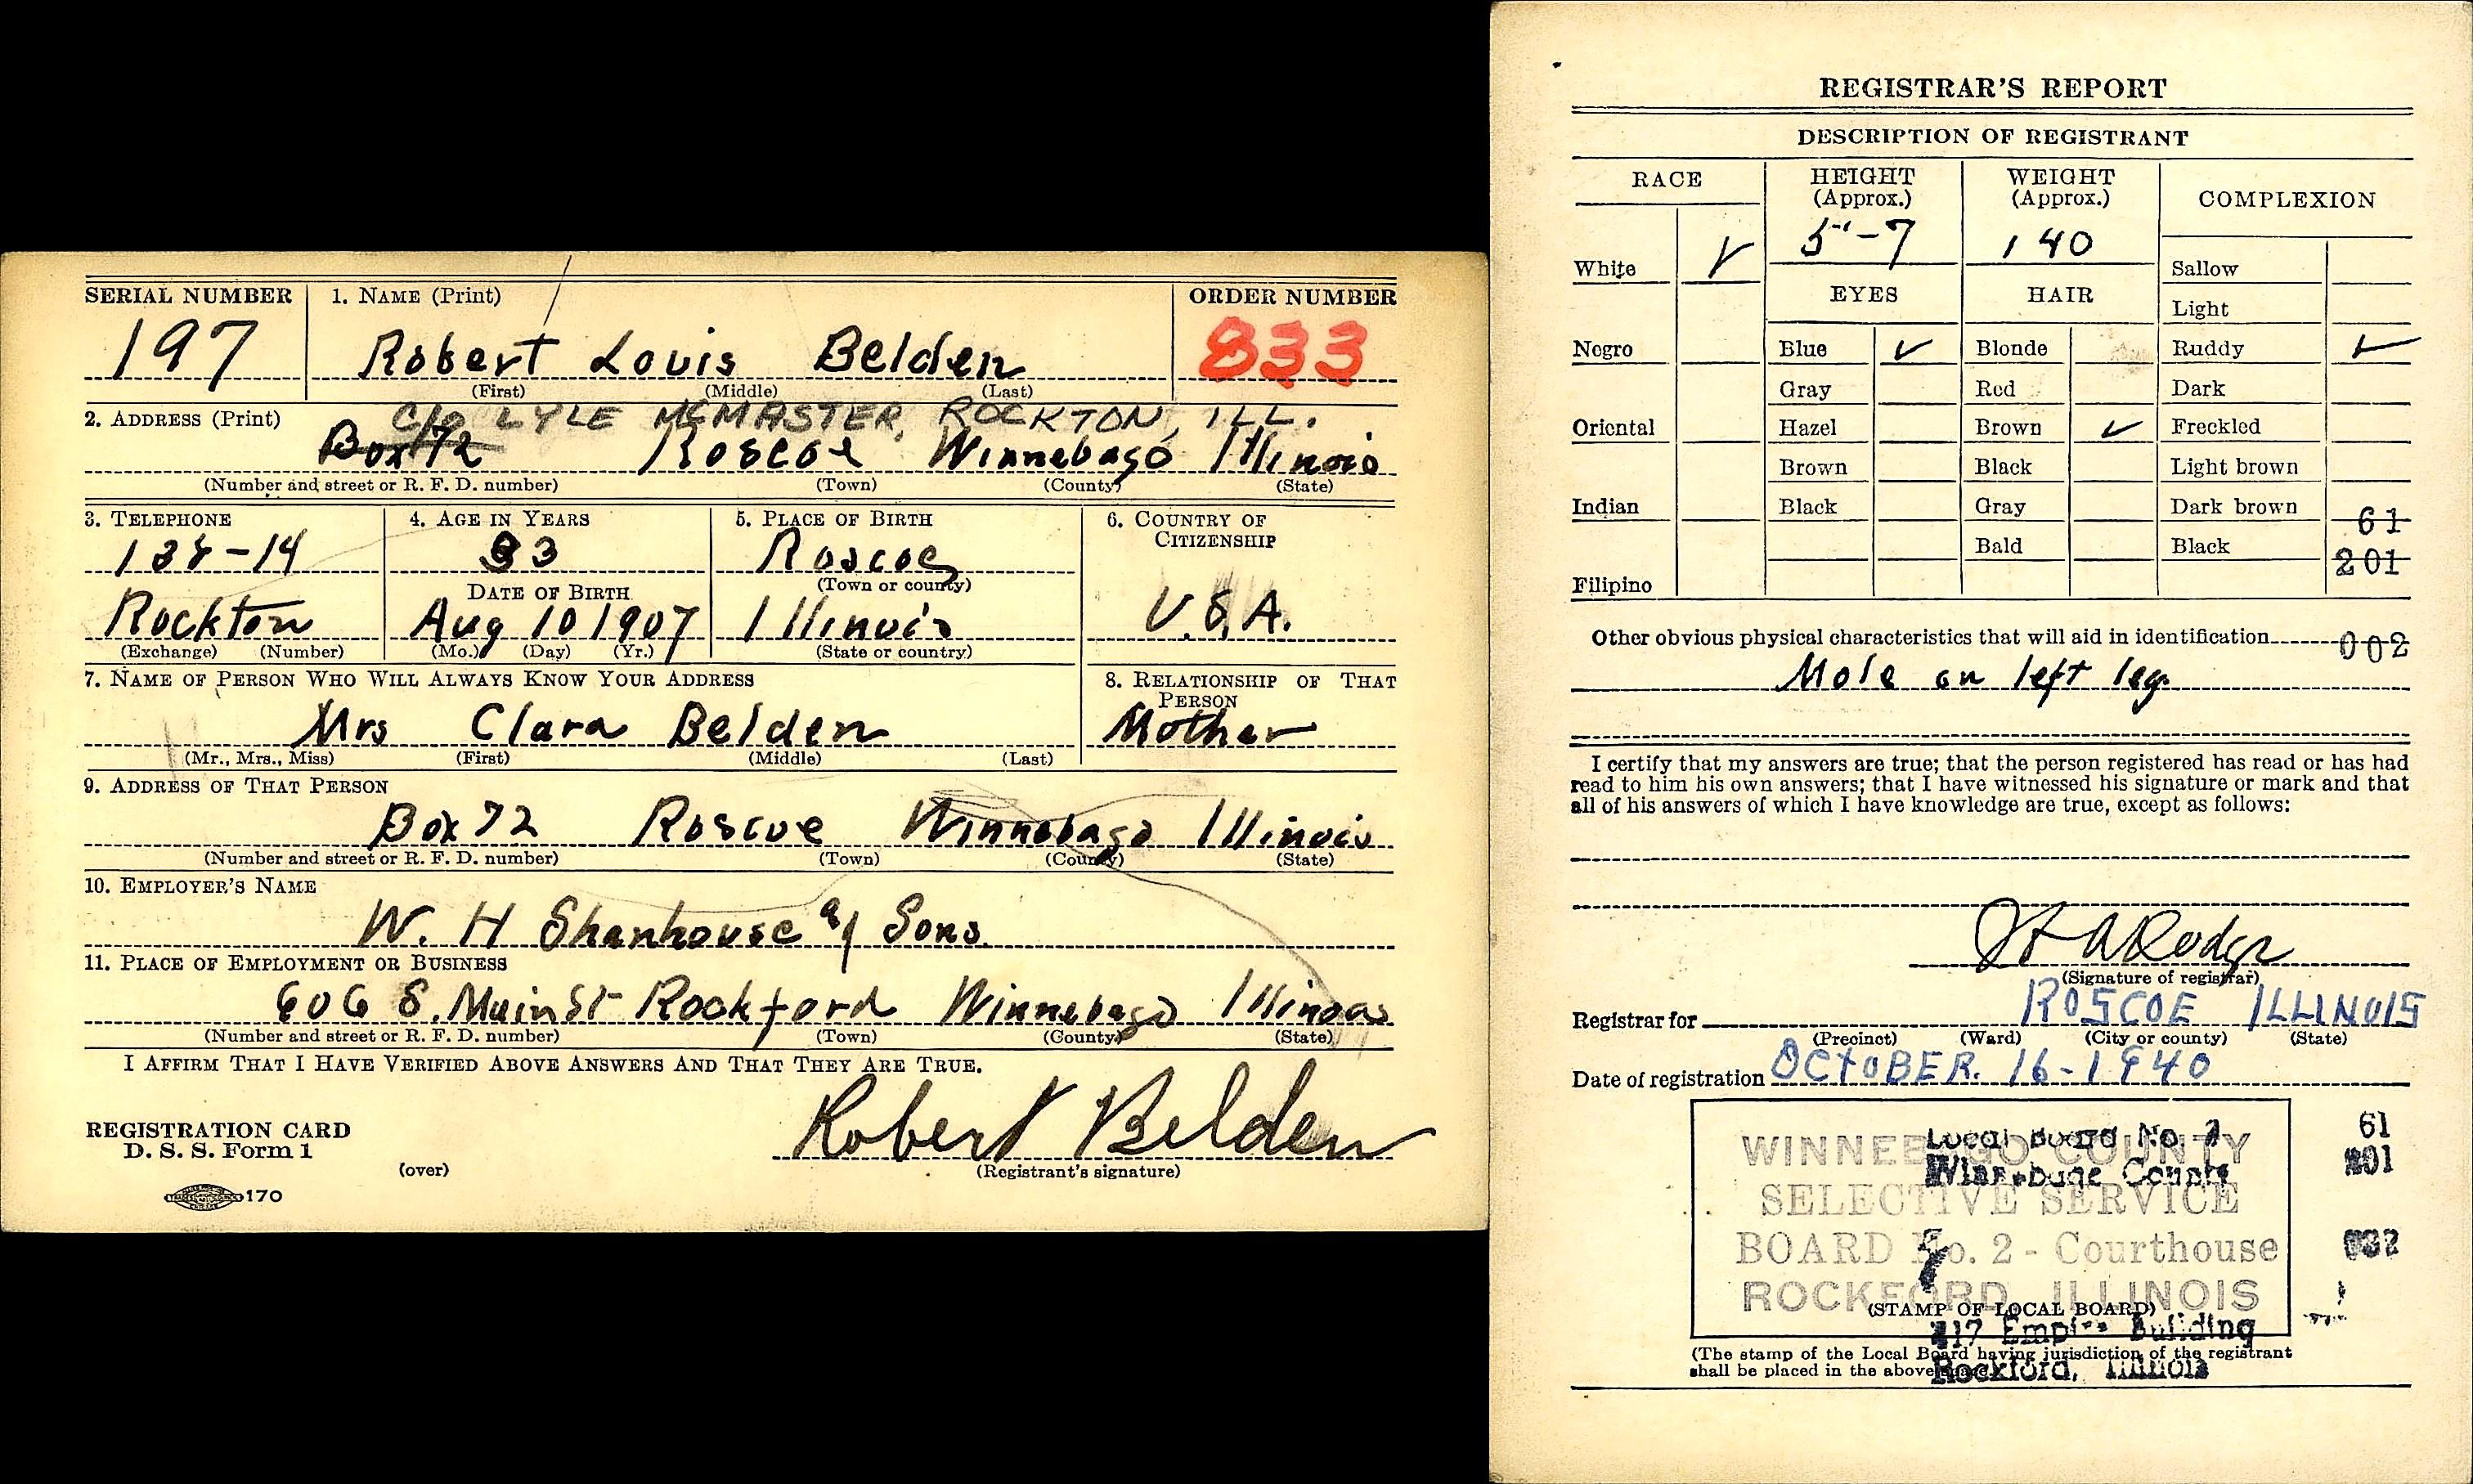 SERIAL NUMBER 1. NAME (Print) ORDER NUMBER
197 Robert Louis Belden 833
(First) (Middle) (Last)
C/O LYLE MCMASTER, ROCKTON, ILL.
2. ADDRESS (Print)
Box 72 Roscoe Winnebago Illinois
(Number and street or R. F. D. number) (Town) (County) (State)
3. TELEPHONE 4. AGE IN YEARS 5. PLACE OF BIRTH 6. COUNTRY OF
CITIZENSHIP
138-14 33 Roscoe
DATE OF BIRTH (Town or county)
Rockton Aug 10 1907 Illinois U.S.A.
(Exchange) (Number) (Mo.) (Day) (Yr.) (State or country)
7. NAME OF PERSON WHO WILL ALWAYS KNOW YOUR ADDRESS 8. RELATIONSHIP OF THAT
PERSON
Mrs Clara Belden Mother
(Mr., Mrs., Miss) (First) (Middle) (Last)
9. ADDRESS OF THAT PERSON
Box 72 Roscoe Winnebago Illinois
(Number and street or R. F. D. number) (Town) (County) (State)
10. EMPLOYER'S NAME
W. H Shanhouse & Sons
11. PLACE OF EMPLOYMENT OR BUSINESS
606 S. Main St Rockford Winnebago Illinois
(Number and street or R. F. D. number) (Town) (County) (State)
I AFFIRM THAT I HAVE VERIFIED ABOVE ANSWERS AND THAT THEY ARE TRUE.
REGISTRATION CARD Robert Belden
D. S. S. Form 1
(over) (Registrant's signature)
170
REGISTRAR'S REPORT
DESCRIPTION OF REGISTRANT
RACE HEIGHT WEIGHT COMPLEXION
(Approx.) (Approx.)
5"-7 140
White Sallow
EYES HAIR
Light
Negro Blue Blonde Ruddy
Gray Red Dark
Oriental Hazel Brown Freckled
Brown Black Light brown
Indian Black Gray Dark brown 61
Bald Black 201
Filipino
Other obvious physical characteristics that will aid in identification 002
Mole on left leg
I certify that my answers are true; that the person registered has read or has had
read to him his own answers; that I have witnessed his signature or mark and that
all of his answers of which I have knowledge are true, except as follows:
(Signature of registrar)
Registrar for ROSCOE ILLINOIS
(Precinct) (Ward) (City or county) (State)
Date of registration OCTOBER. 16-1940
Local Board No. 61
WINNEBAGO COUNTY
County 201
SELECTIVE SERVICE
BOARD No. 2 - Courthouse
ROCKFORD, ILLINOIS
(STAMP OF LOCAL BOARD)
Building
(The stamp of the Local Board having jurisdiction of the registrant
shall be placed in the above space.)
Rockford, Illinois